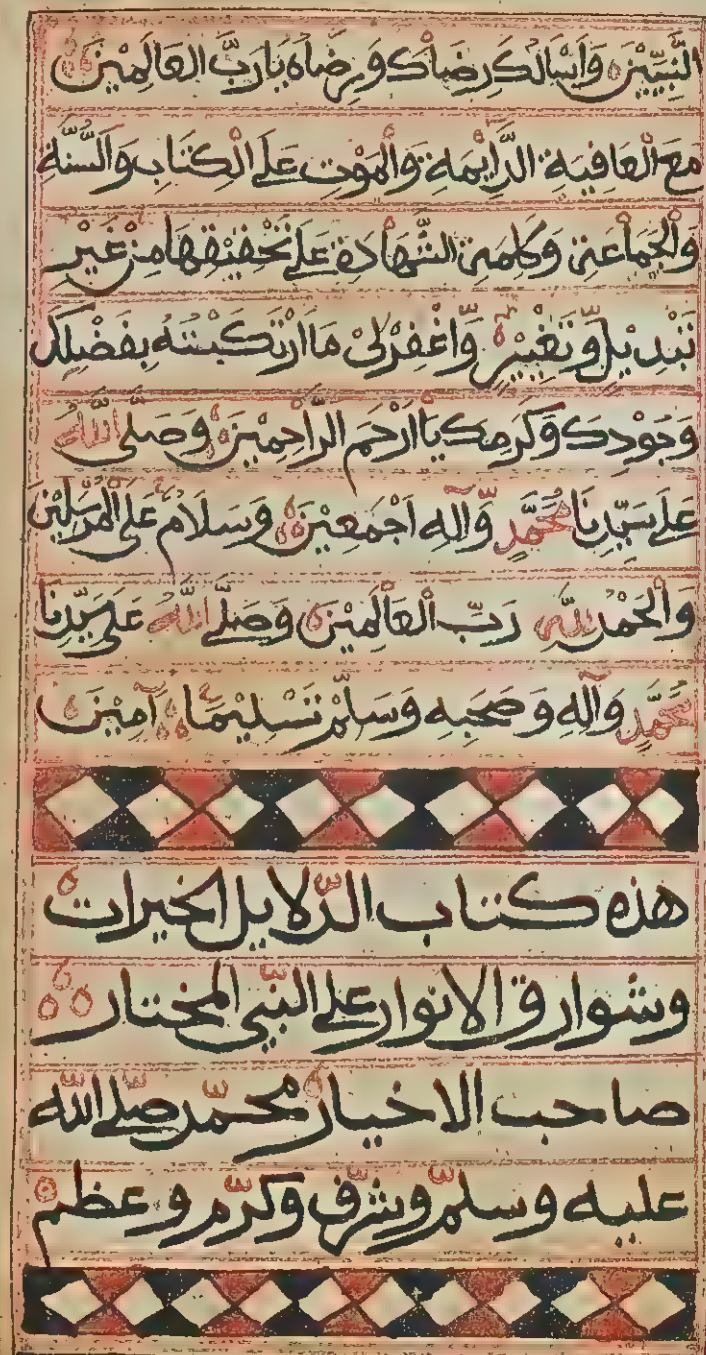 النَّبِيِّيْنَ وَاَسْاَلُكَ رِضَاكَ وَرِضَاهُ يَارَبَّ الْعَالَمِيْنَ
مَعَ الْعَافِيَةِ الدَّايِمَةِ وَالْمَوْتِ عَلَى الْكِتَابِ وَالسُّنَّةِ
وَالْجَمَاعَةِ وَكَلِمَةِ الشَّهَادَةِ عَلَى تَحْقِيْقِهَا مِنْ غَيْرِ
تَبْدِيْلٍ وَّتَغْيِيْرٍ وَّاغْفِرْ لِيْ مَا ارْتَكَبْتُهُ بِفَضْلِكَ
وَجُوْدِكَ وَكَرَمِكَ يَااَرْحَمَ الرَّاحِمِيْنَ وَصَلَّى اللّٰهُ
عَلَى سَيِّدِنَا مُحَمَّدٍ وَّآلِهِ اَجْمَعِيْنَ وَسَلَامٌ عَلَى الْمُرْسَلِيْنَ
وَالْحَمْدُ لِلّٰهِ رَبِّ الْعَالَمِيْنَ وَصَلَّى اللّٰهُ عَلَى سَيِّدِنَا
مُحَمَّدٍ وَآلِهِ وَصَحْبِهِ وَسَلَّمْ تَسْلِيْمًا آمِيْنَ
هذه كتاب الدّلايل الخيرات
وشوارق الانوار على النّبي المختار
صاحب الاخيار محمّد صلّى الله
عليه وسلّم وشرّف وكرّم وعظم